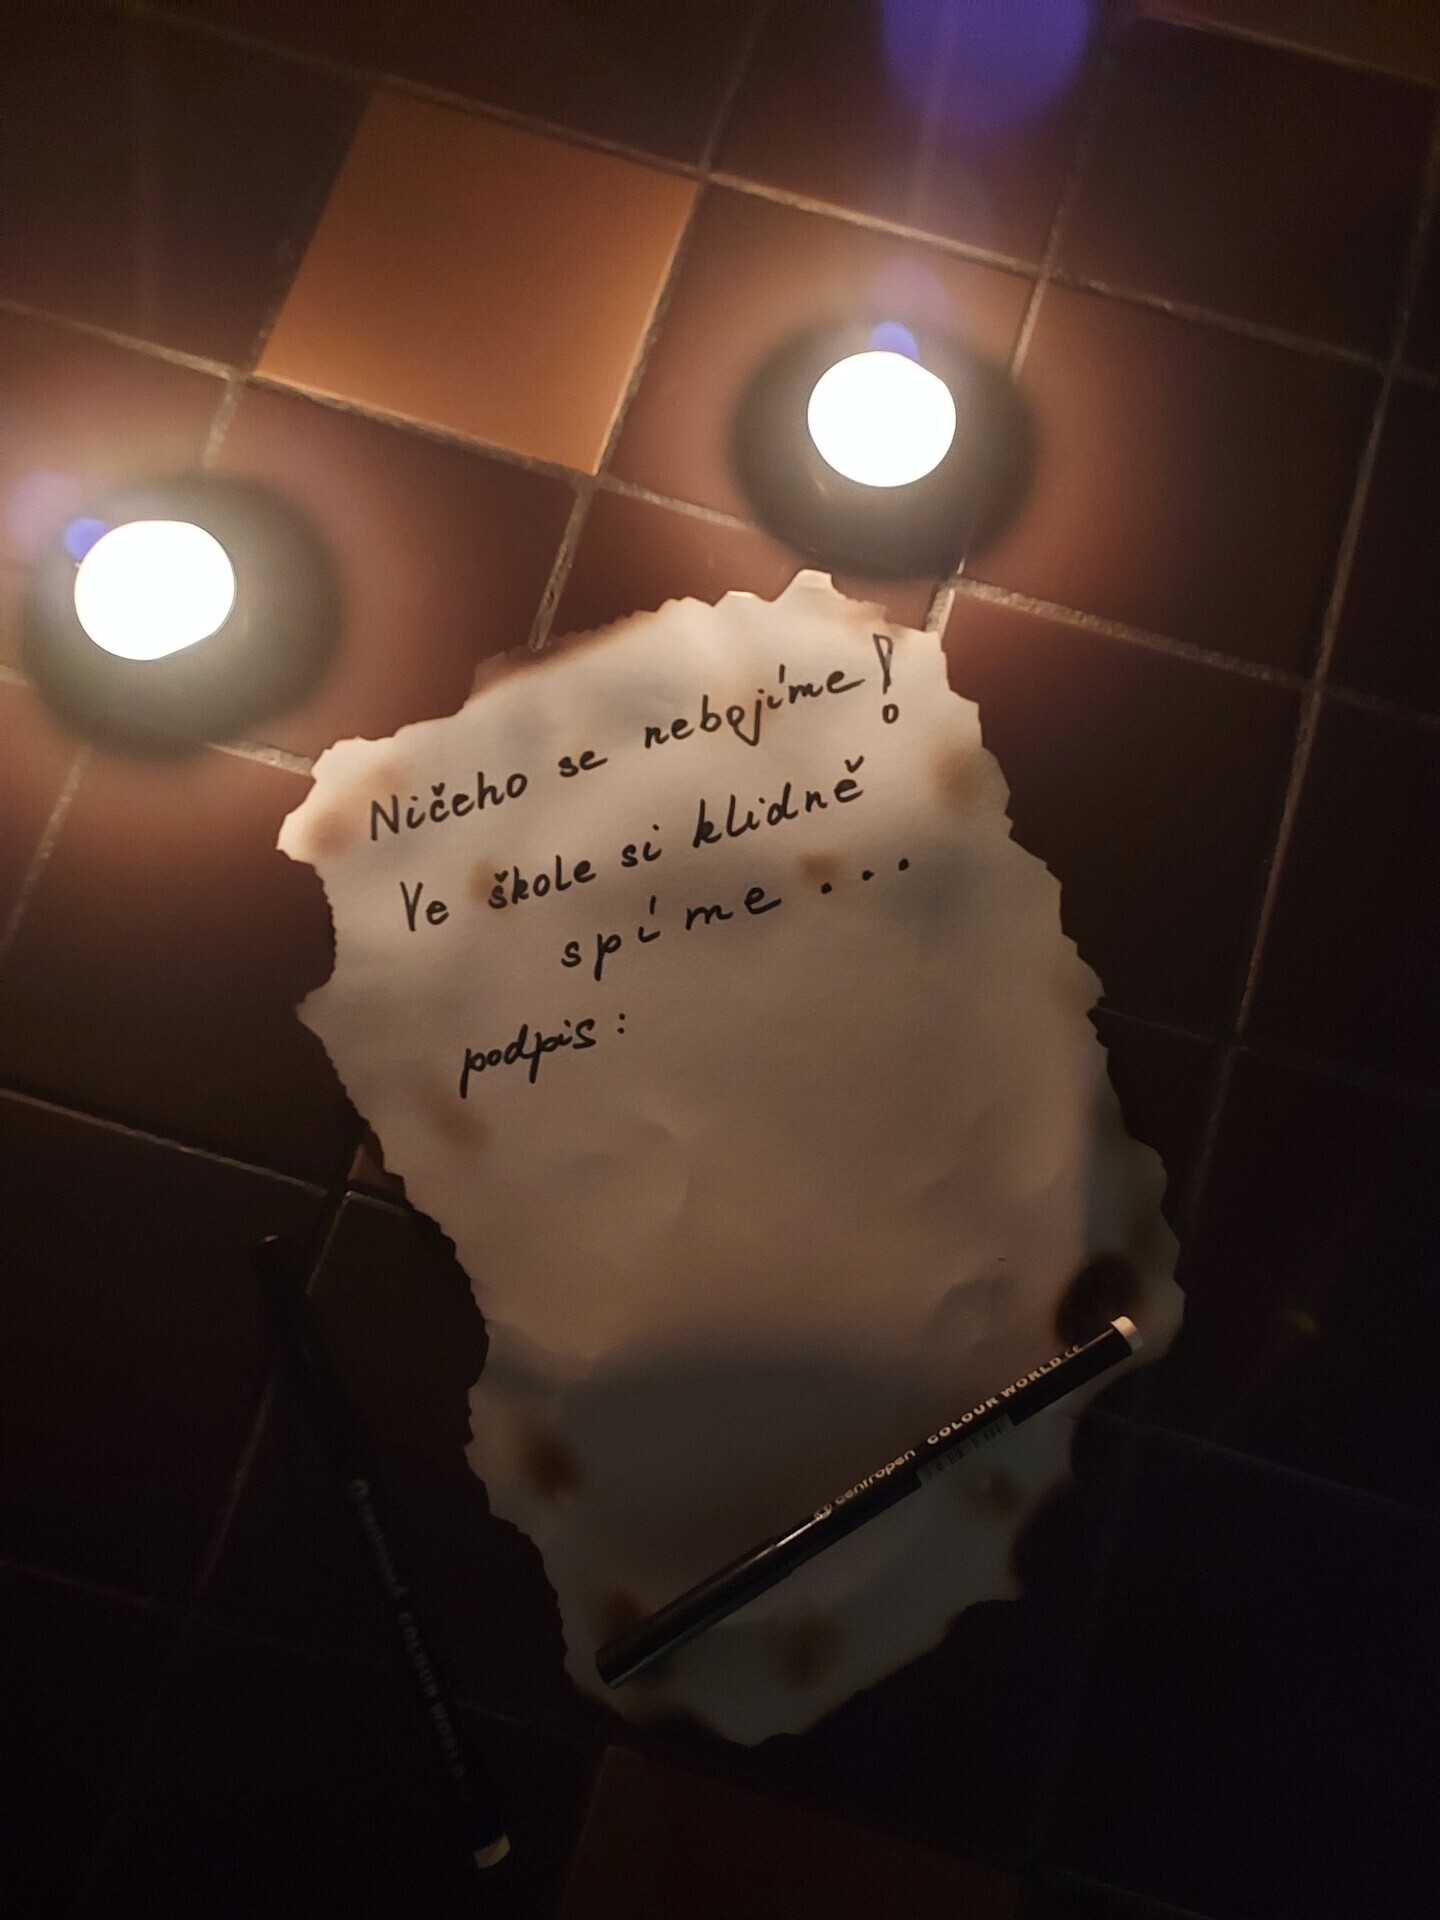 Ničeho se nebojíme!
Ve škole si klidně
spíme...
podpis:
centropen COLOUR WORLD CE
centropen COLOUR WORLD